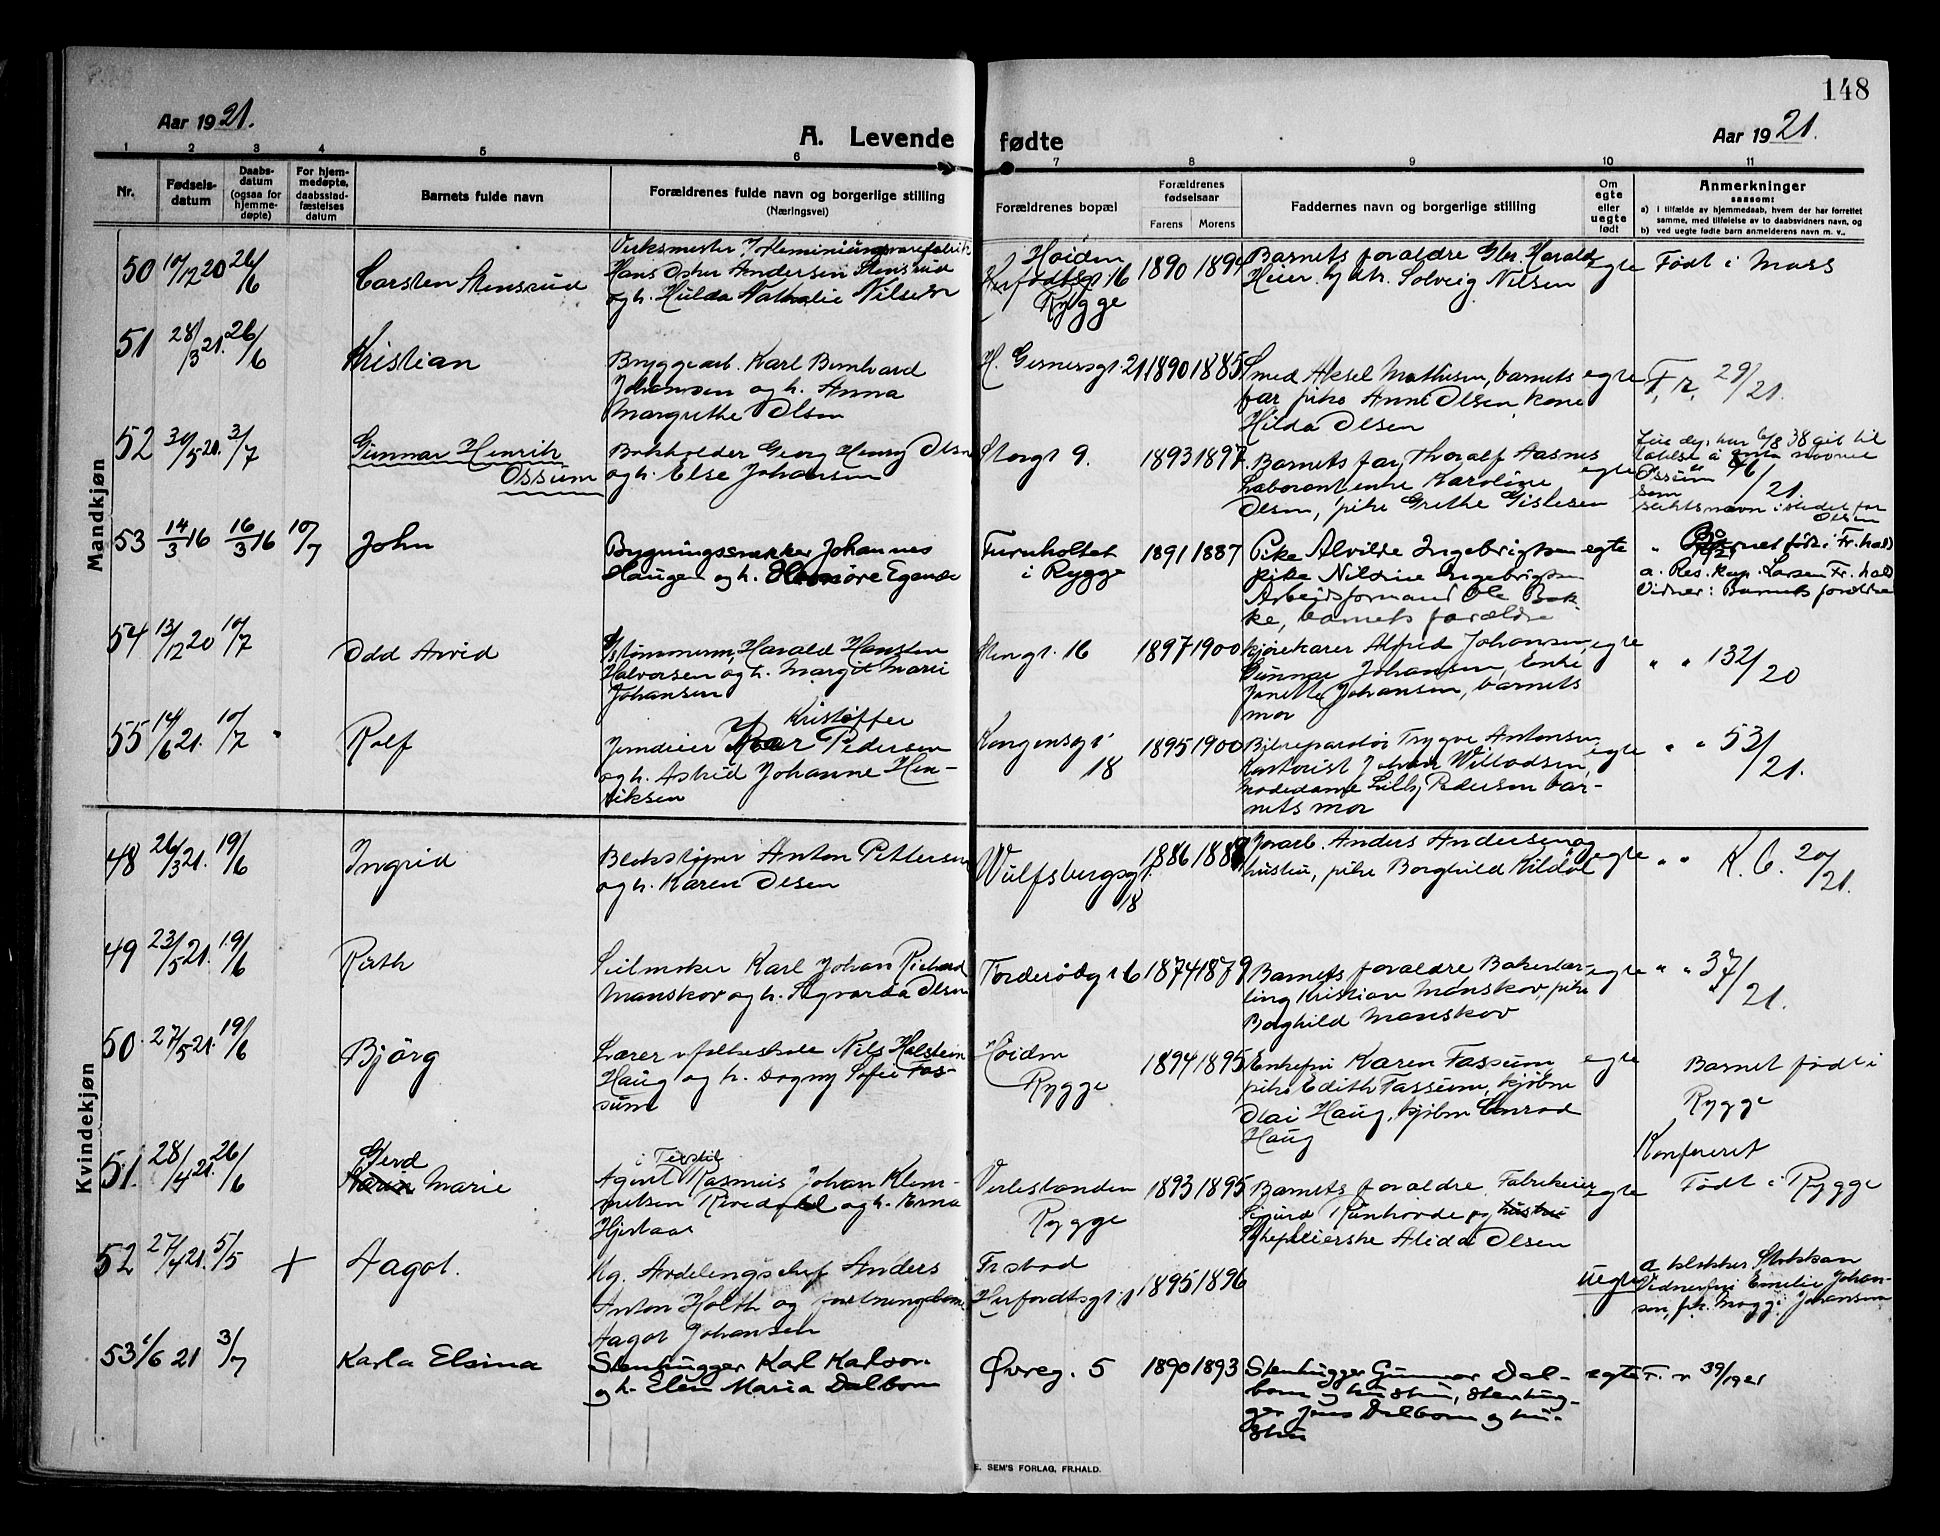 148
Aar 1921.
A. Levende fødte
Aar 1921.
1 2 3 4 5 6 7 8 9 10 11
Nr.
Fødsels-
datum
Daabs-
datum
(ogsaa for
hjemme-
døpte)
For hjem-
medøpte,
daabsstad-
fæstelses
datum
Barnets fulde navn
Forældrenes fulde navn og borgerlige stilling
(Næringsvei)
Forældrenes bopæl
Forældrenes
fødselsaar
Farens Morens
Faddernes navn og borgerlige stilling
Om
egte
eller
uegte
født
Anmerkninger
saasom:
a) i tilfælde av hjemmedaab, hvem der har forrettet
samme, med tilføielse av to daabsvidners navn, og
b) ved uegte fødte barn anmelderens navn m. v..
Mandkjøn
50 10/12 20 26/6 Carsten Stensrud
Verksmester v/Aleminiumsvarefabrik
Hans Oskar Andersen Stensrud
og h. Hulda Nathalie Nilsen
Høiden
Herfodtsgt 16
Rygge
1890 1894
Barnets forældre Gbr. Harald
Heier Solveig Nilsen
egte
Født i Moss
51 28/3 21. 26/6 Kristian
Bryggearb. Karl Bernhard
Johansen og h. Anna
Margrethe Olsen
H. Gernersgt. 21. 1890 1885
Smed Aksel Mathisen, barnets
far pike Anne Olsen, kone
Hilda Olsen
egte
F. r. 29/21.
52 30/5 21. 3/7 Gunnar Henrik
Ossum
Bokholder Georg Henry Olsen
og h. Else Johansen
Storgt 9. 1893 1897
Barnets far, Thoralf Aasnes
Laborant enke Karoline
Olsen, pike Grethe Gislesen
egte
46/21.
som
slektsnavn istedet for
Olsen
53 14/3 16 16/3 16 10/7 John
Bygningssnekker Johannes
Haugen og h. Egense
Furuholtet
i Rygge
1891 1887
Pike Alvilde Ingebrigtsen
pike Nildine Ingebrigtsen
Arbeidsformand Ole Bak-
ke, barnets forældre
egte
" Barnet født i Fr.hald
a. Res. kap. Larsen Fr.hald
Vidner: Barnets forældre
54 13/12 20 10/7 Odd Arvid
Tømmerm. Harald Hansten
Halvorsen og h. Margit Marie
Johansen
Stengt. 16 1897 1900
Kjørekarer Alfred Johansen,
Gunnar Johansen, Enke
Janette Johansen, barnets
mor
egte
" " 132/20
55 14/6 21. 10/7 " Rolf
Kristoffer
Jerndreier Pedersen
og h. Astrid Johanne Hen-
riksen
Kongensgt
18
1895 1900
Bilreparatør Trygve Antonsen
Kontorist Johan Willadsen,
Modedame Lilly Pedersen bar-
nets mor
egte
" " 53/21.
Kvindekjøn
48 26/3 21. 19/6 Ingrid
Blikstøper Anton Pettersen
og h. Karen Olsen
Wulfsbergsgt.
18
1886 1888
Jernarb. Anders Andersen og
hustru, pike Borghild Kildal
egte
" " K. C. 20/21.
49 23/5 21. 19/6 Ruth
Seilmaker Karl Johan Richard
Manskov og h. Sigvarda Olsen
Torderødgt 6 1874 1879
Barnets forældre Bakerlær-
ling Kristian Manskov, pike
Borghild Manskov
egte
" " 37/21.
50. 27/5 21. 19/6 Bjørg
Lærer v folkeskole Nils Halstein
Haug og h. Dagny Sofie Fos-
sum
Høiden
Rygge
1894 1895
Enkefru Karen Fossum
pike Edith Fossum, kjøbm
Olai Haug, kjøbm Conrad
Haug
egte
Barnet født i
Rygge
Konfereret
51. 28/4 21. 26/6 Gerd
Karin Marie
i Tekstil
Agent Rasmus Johan Klem-
metsen Rivedal og h. Erna
Hjertaas
Verlestanden
Rygge
1893 1895
Barnets forældre. Fabrikeier
Sigurd Runhovde og hustru
Olsen
egte
Født i Rygge
52 27/4 21. 5/5 + Aagot.
Kg. Avdelingschef Anders
Anton Holth og
Aagot Johansen
Fr.stad
Herfordtsgt 1
1895 1896
uegte
a klokker Stokkan
Vidner fru Emilie Johan-
sen, pk. Maggi Johansen
53 1/6 21 3/7 Karla Elsina
Stenhugger Karl Karlson
og h. Elen Maria Dalbom
Øvreg. 5 1890 1893
Stenhugger Gunnar Dal-
bom og hustru, stenhug-
ger Jens Dalbom og hu-
stru
egte
F. r 39/1921
E. SEM'S FORLAG, FR.HALD.